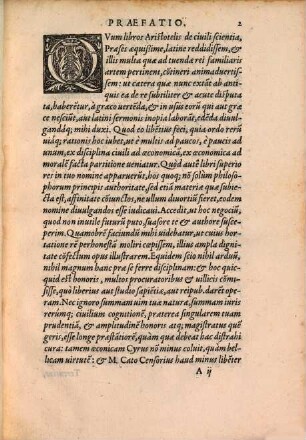 PRAEFATIO. 2
CVum libros Aristotelis de ciuili scientia,
Præses æquissime, latine reddidissem, &
illis multa quæ ad tuendæ rei familiaris
artem pertinent, cōtineri animaduertis-
sem: ut cætera quæ nunc extāt ab anti-
quis ea de re subtiliter & acute disputa
ta, haberētur, à græco uertēda, & in usus eorū qui aut græ
ce nesciūt, aut latini sermonis inopia laborāt, edēda diuul
gandáq; mihi duxi. Quod eo libētius feci, quia ordo rerū
uiáq; rationis hoc iubet, ut è multis ad paucos, è paucis ad
unum, ex disciplina ciuili ad œconomicā, ex œconomica ad
moralē facta partitione ueniatur. Quòd autē libri superio
res in tuo nomine apparuerūt, hos quoq; nō solùm philoso-
phorum principis authoritate, sed etiā materiæ quæ subie-
cta est, affinitate cōiunctos, ne ullum diuortiū fieret, eodem
nomine diuulgandos esse iudicaui. Accedit, ut hoc negociū,
quod non inutile futurū puto, suasore te & authore susce-
perim. Quamobrē faciundū mihi uidebatur, ut cuius hor-
tatione rē perhonestā moliri cœpissem, illius ampla dignita
te cōfectum opus illustrarem. Equidem scio nihil arduū,
nihil magnum hanc præ se ferre disciplinam: & hoc quic-
quid est honoris, multos procuratoribus & uillicis cōmis-
isse, quò liberius aut studio sapiētiæ, aut reipub. darēt ope
ram. Nec ignoro summam uim tuā naturæ, summam iuris
rerumq; ciuilium cognitionē, præterea singularem tuam
prudentiā, & amplitudinē honoris atq; magistratus quē
geris, esse longe præstātiorē, quàm quæ debeat hac distrahi
cura: tamen œconicam Cyrus nō minus coluit, quàm bel-
licam uirtutē: & M. Cato Censorius haud minus libēter
A ij